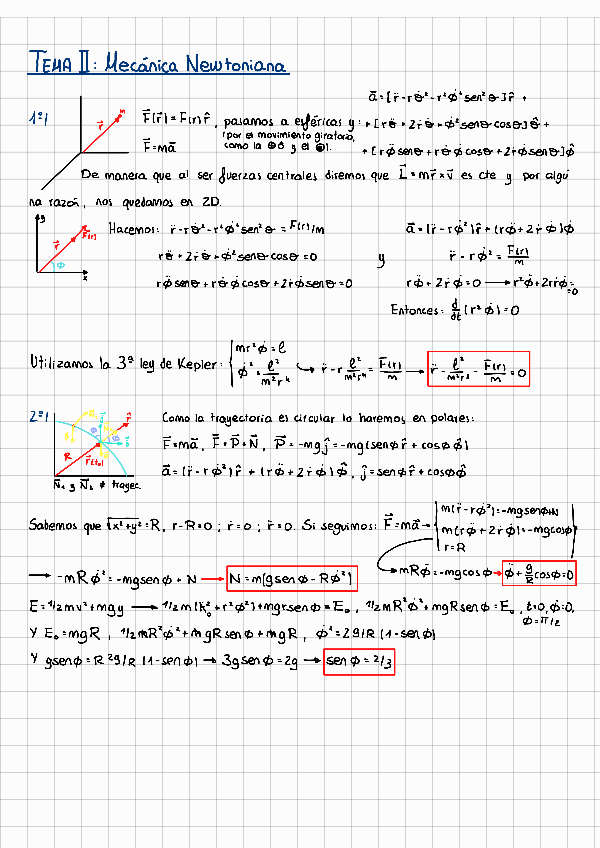 TEMA II: Mecánica Newtoniana
1º|
F⃗(r⃗) = F(r) r̂, pasamos a esféricas y:
(por el movimiento giratorio,
F⃗ = ma⃗
a⃗ = [r̈ - rθ̇² - r²φ̇²sen²θ] r̂ +
+ [rθ̈ + 2ṙθ̇ - φ̇²senθcosθ] θ̂ +
+ [rφ̈senθ + rθ̇φ̇cosθ + 2ṙφ̇senθ] φ̂
De manera que al ser fuerzas centrales diremos que L⃗ = mr⃗ × v⃗ es cte y por algu
na razón, nos quedamos en 2D.
Hacemos: r̈ - rθ̇² - r²φ̇²sen²θ = F(r)/m
a⃗ = (r̈ - rφ̇²) r̂ + (rφ̈ + 2ṙφ̇) φ̂
rθ̈ + 2ṙθ̇ - φ̇²senθcosθ = 0 y r̈ - rφ̇² = F(r)/m
rφ̈senθ + rθ̇φ̇cosθ + 2ṙφ̇senθ = 0
rφ̈ + 2ṙφ̇ = 0 → r²φ̈ + 2rṙφ̇ = 0
Entonces: d/dt (r²φ̇) = 0
Utilizamos la 3ª ley de Kepler: { mr²φ̇ = l
φ̇² = l²/m²r⁴ → r̈ - r l²/m²r⁴ = F(r)/m → r̈ - l²/m²r³ - F(r)/m = 0
2º|
Como la trayectoria es circular lo haremos en polares:
F⃗ = ma⃗, F⃗ = P⃗ + N⃗, P⃗ = -mg ĵ = -mg(senφ r̂ + cosφ φ̂)
a⃗ = (r̈ - rφ̇²) r̂ + (rφ̈ + 2ṙφ̇) φ̂, ĵ = senφ r̂ + cosφ φ̂
Sabemos que √(x²+y²) = R, r - R = 0; ṙ = 0; r̈ = 0. Si seguimos: F⃗ = ma⃗ → { m(r̈ - rφ̇²) = -mgsenφ + N
m(rφ̈ + 2ṙφ̇) = -mgcosφ
r = R
→ -mRφ̇² = -mgsenφ + N → N = m(gsenφ - Rφ̇²)
→ mRφ̈ = -mgcosφ → φ̈ + g/R cosφ = 0
E = 1/2mv² + mgy → 1/2m(ṙ² + r²φ̇²) + mgrsenφ = E₀, 1/2mR²φ̇² + mgRsenφ = E₀, t=0, φ̇=0,
φ = π/2
Y E₀ = mgR, 1/2mR²φ̇² + mgRsenφ + mgR, φ̇² = 2g/R (1 - senφ)
Y gsenφ = R 2g/R (1 - senφ) → 3gsenφ = 2g → senφ = 2/3